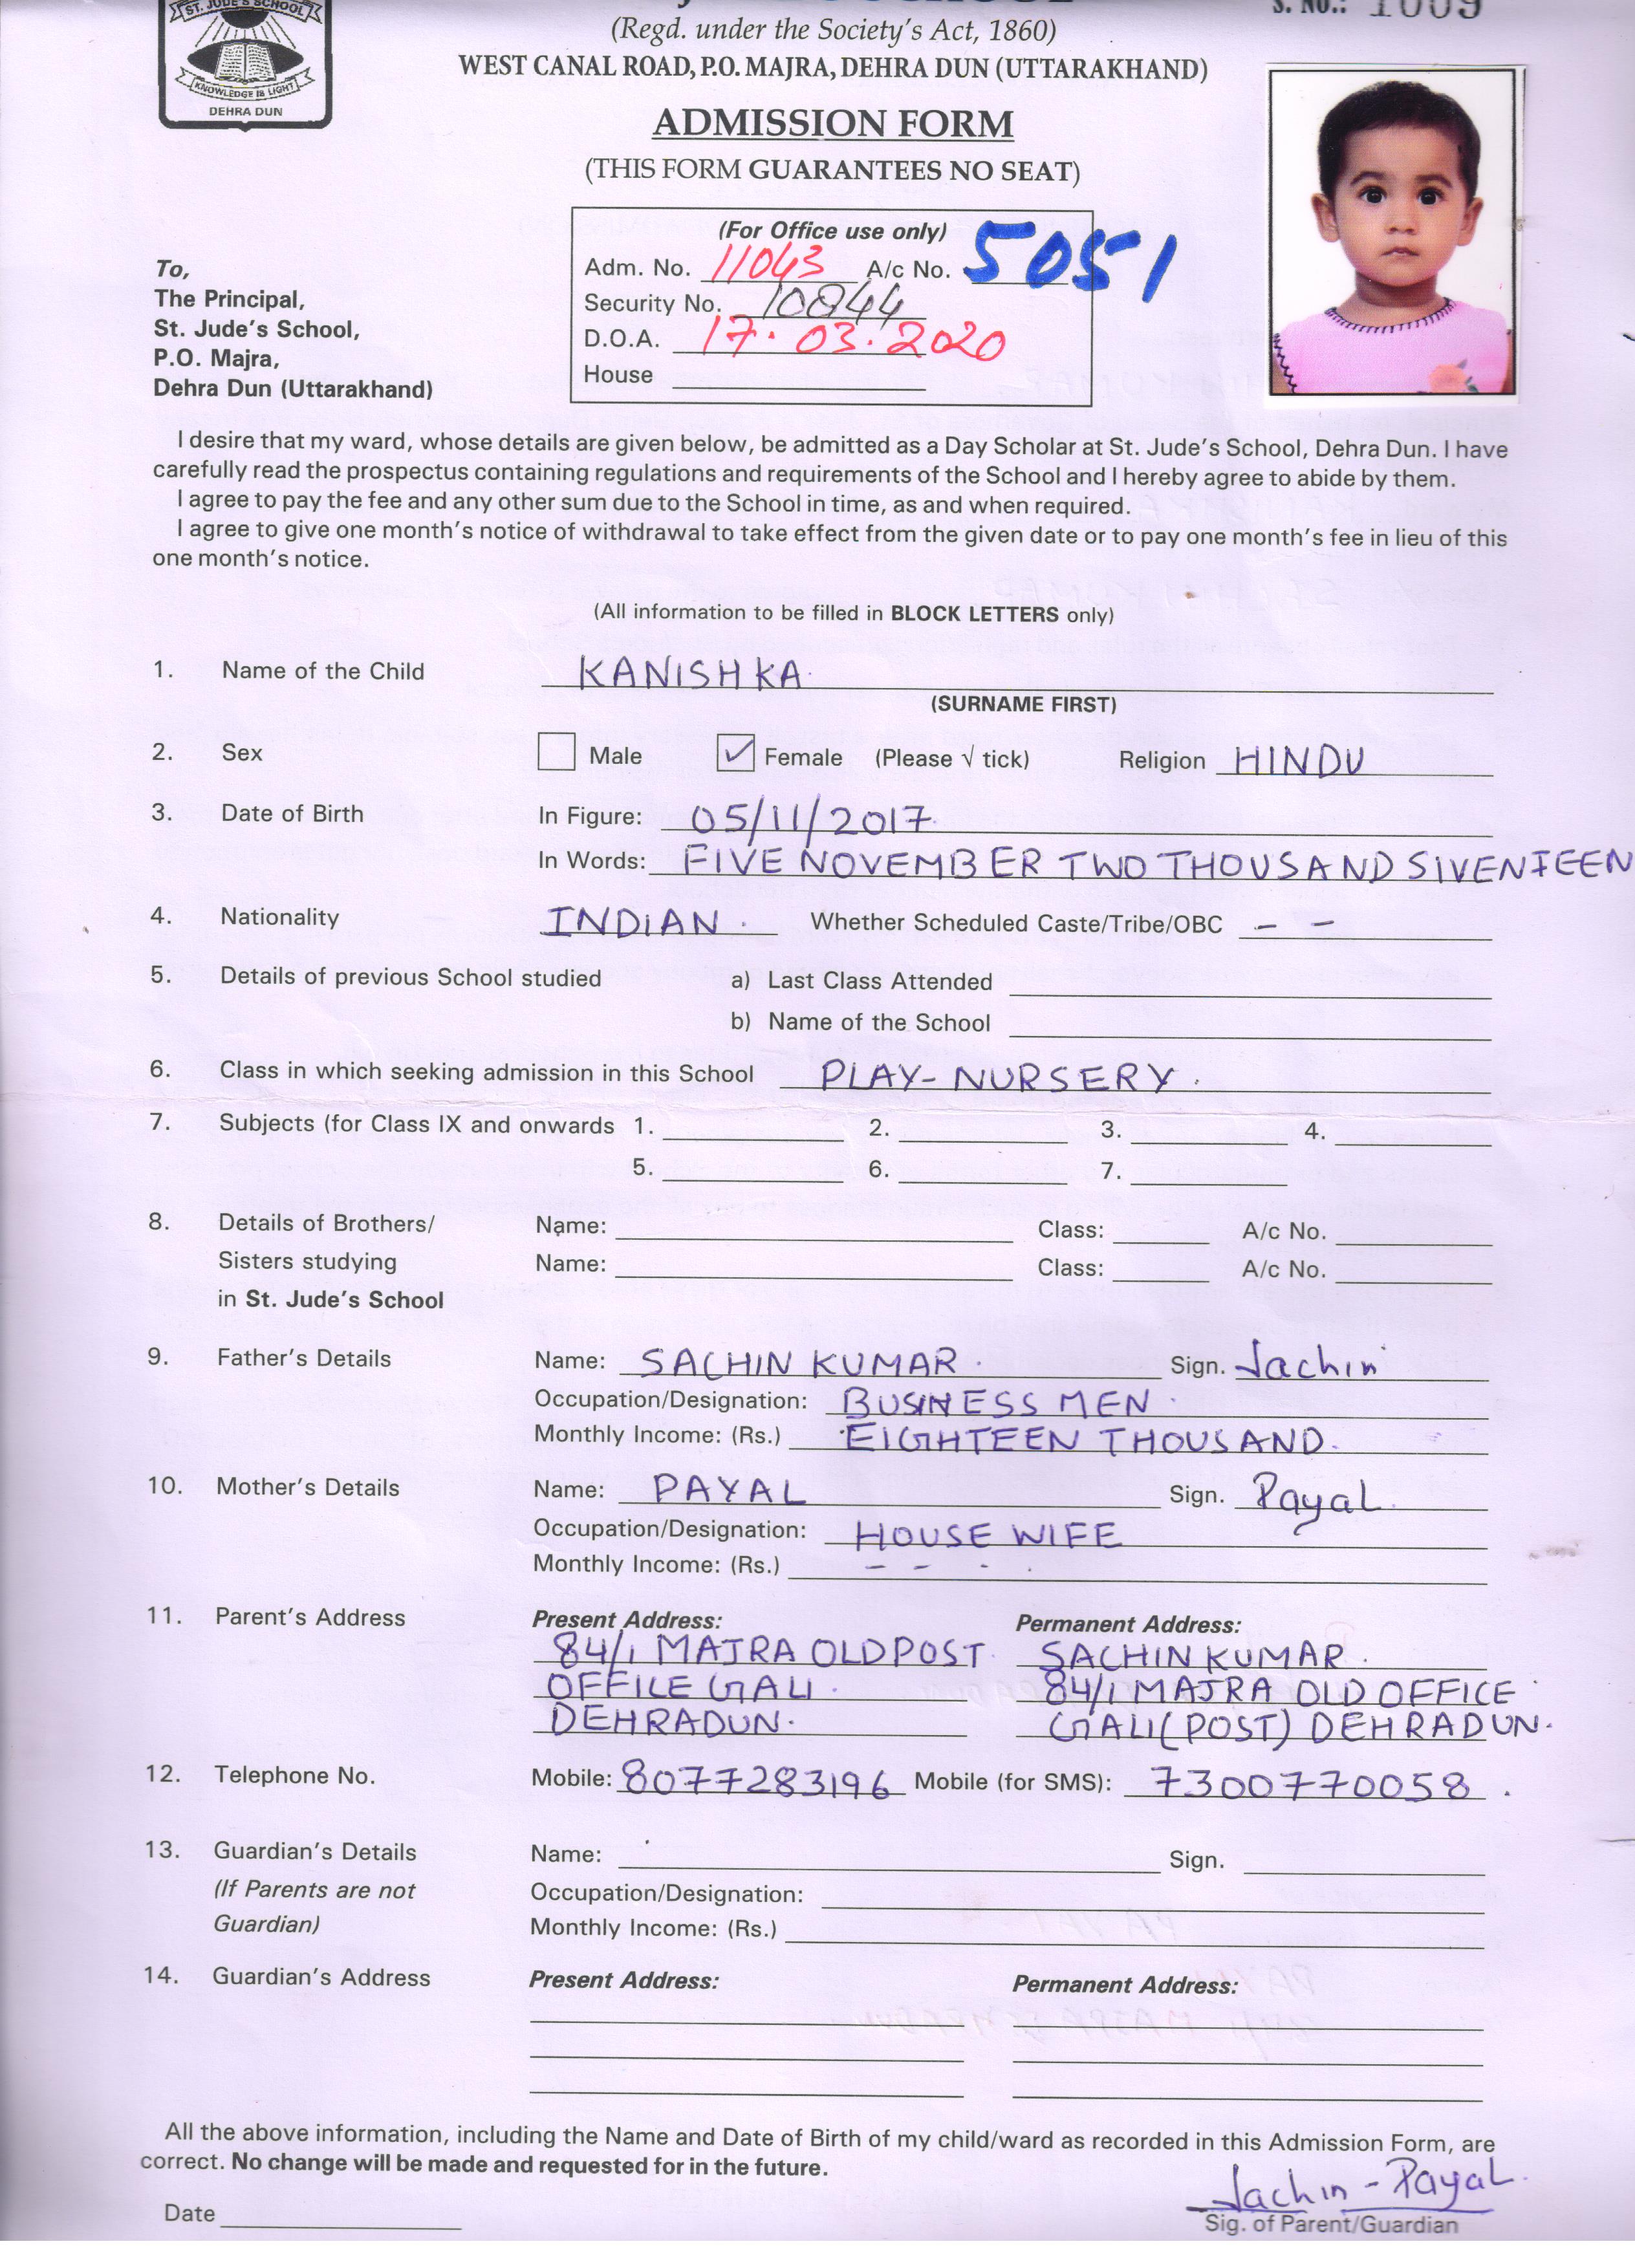 ST. JUDE'S SCHOOL
KNOWLEDGE IS LIGHT
DEHRA DUN
S. NO.: 1009
(Regd. under the Society's Act, 1860)
WEST CANAL ROAD, P.O. MAJRA, DEHRA DUN (UTTARAKHAND)
ADMISSION FORM
(THIS FORM GUARANTEES NO SEAT)
(For Office use only)
Adm. No. 11043 A/c No. 5051
Security No. 10844
D.O.A. 17.03.2020
House
To,
The Principal,
St. Jude's School,
P.O. Majra,
Dehra Dun (Uttarakhand)
I desire that my ward, whose details are given below, be admitted as a Day Scholar at St. Jude's School, Dehra Dun. I have
carefully read the prospectus containing regulations and requirements of the School and I hereby agree to abide by them.
I agree to pay the fee and any other sum due to the School in time, as and when required.
I agree to give one month's notice of withdrawal to take effect from the given date or to pay one month's fee in lieu of this
one month's notice.
(All information to be filled in BLOCK LETTERS only)
1. Name of the Child KANISHKA
(SURNAME FIRST)
2. Sex Male ✓ Female (Please √ tick) Religion HINDU
3. Date of Birth In Figure: 05/11/2017
In Words: FIVE NOVEMBER TWO THOUSAND SIVENTEEN
4. Nationality INDIAN. Whether Scheduled Caste/Tribe/OBC - -
5. Details of previous School studied a) Last Class Attended
b) Name of the School
6. Class in which seeking admission in this School PLAY-NURSERY.
7. Subjects (for Class IX and onwards 1. 2. 3. 4.
5. 6. 7.
8. Details of Brothers/ Name: Class: A/c No.
Sisters studying Name: Class: A/c No.
in St. Jude's School
9. Father's Details Name: SACHIN KUMAR. Sign. Sachin
Occupation/Designation: BUSINESS MEN.
Monthly Income: (Rs.) EIGHTEEN THOUSAND.
10. Mother's Details Name: PAYAL Sign. Payal
Occupation/Designation: HOUSE WIFE
Monthly Income: (Rs.) - - - .
11. Parent's Address Present Address: Permanent Address:
84/1 MAJRA OLD POST SACHIN KUMAR.
OFFILE GALI. 84/1 MAJRA OLD OFFICE
DEHRADUN. GALI (POST) DEHRADUN.
12. Telephone No. Mobile: 8077283196 Mobile (for SMS): 7300770058.
13. Guardian's Details Name: Sign.
(If Parents are not Occupation/Designation:
Guardian) Monthly Income: (Rs.)
14. Guardian's Address Present Address: Permanent Address:
All the above information, including the Name and Date of Birth of my child/ward as recorded in this Admission Form, are
correct. No change will be made and requested for in the future.
Sachin - Payal.
Date Sig. of Parent/Guardian